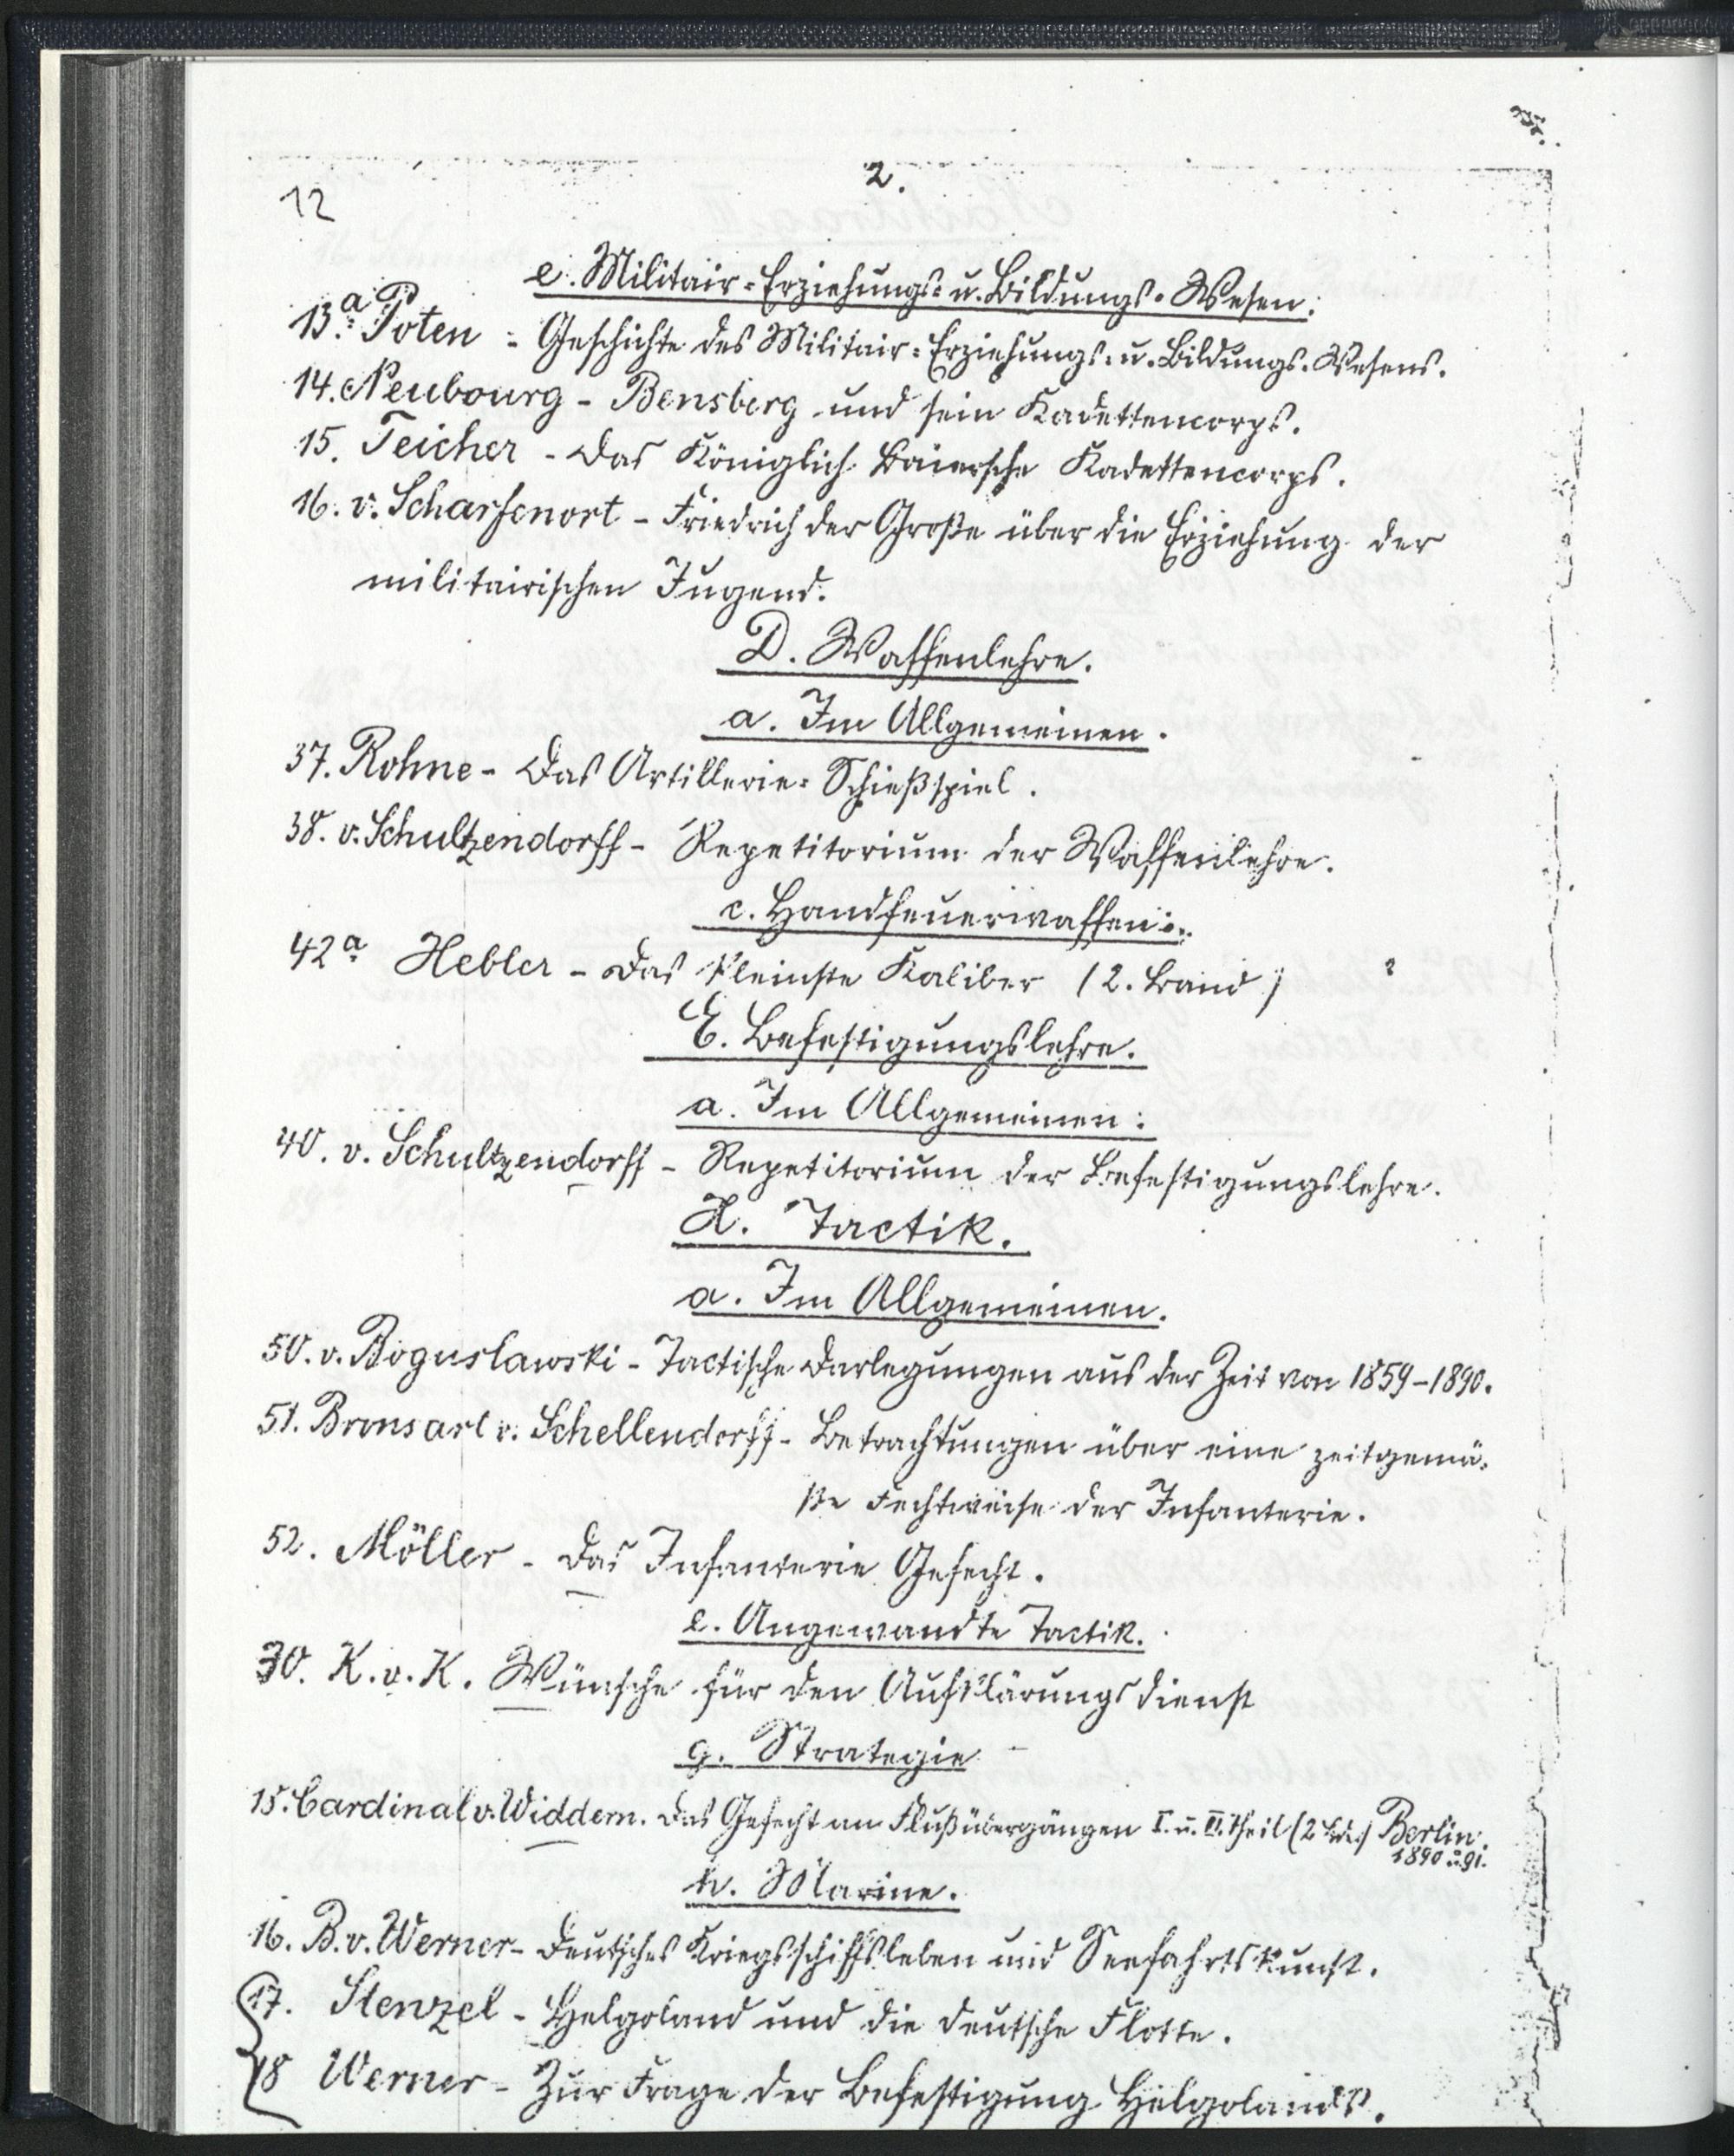 2.
12
e. Militair-Erziehungs- u. Bildungs-Wesen:
13a. Poten - Geschichte des Militair-Erziehungs- u. Bildungs-Wesens.
14. Neubourg - Bensberg und sein Kadettencorps.
15. Teicher - Das Königlich Baiersche Kadettencorps.
16. v. Scharfenort - Friedrich der Große über die Erziehung der
militairischen Jugend.
D. Waffenlehre.
a. Im Allgemeinen.
37. Rohne - Das Artillerie-Schießspiel.
38. v. Schultzendorff - Repetitorium der Waffenlehre.
c. Handfeuerwaffen:
42a Hebler - Das kleinste Kaliber (2. Band)
E. Befestigungslehre.
a. Im Allgemeinen:
40. v. Schultzendorff - Repetitorium der Befestigungslehre.
H. Tactik.
a. Im Allgemeinen.
50. v. Boguslawski - Tactische Darlegungen aus der Zeit von 1859-1890.
51. Bronsart v. Schellendorff - Betrachtungen über eine zeitgemä-
ße Fechtweise der Infanterie.
52. Möller - Das Infanterie Gefecht.
e. Angewandte Tactik.
30. K. v. K. Wünsche für den Aufklärungsdienst
g. Strategie
15. Cardinal v. Widdern. Das Gefecht an Flußübergängen I. u. II. Theil (2 Bde.) Berlin.
1890 u. 91.
h. Marine.
16. B. v. Werner - Deutsches Kriegsschiffsleben und Seefahrtskunst.
17. Stenzel - Helgoland und die deutsche Flotte.
18 Werner - Zur Frage der Befestigung Helgolands.